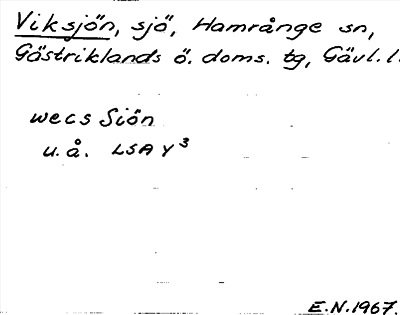 Viksjön, sjö, Hamrånge sn,
Gästriklands ö. doms. tg, Gävl. l.
wecs Siön
u.å. LSA Y³
E.N. 1967.